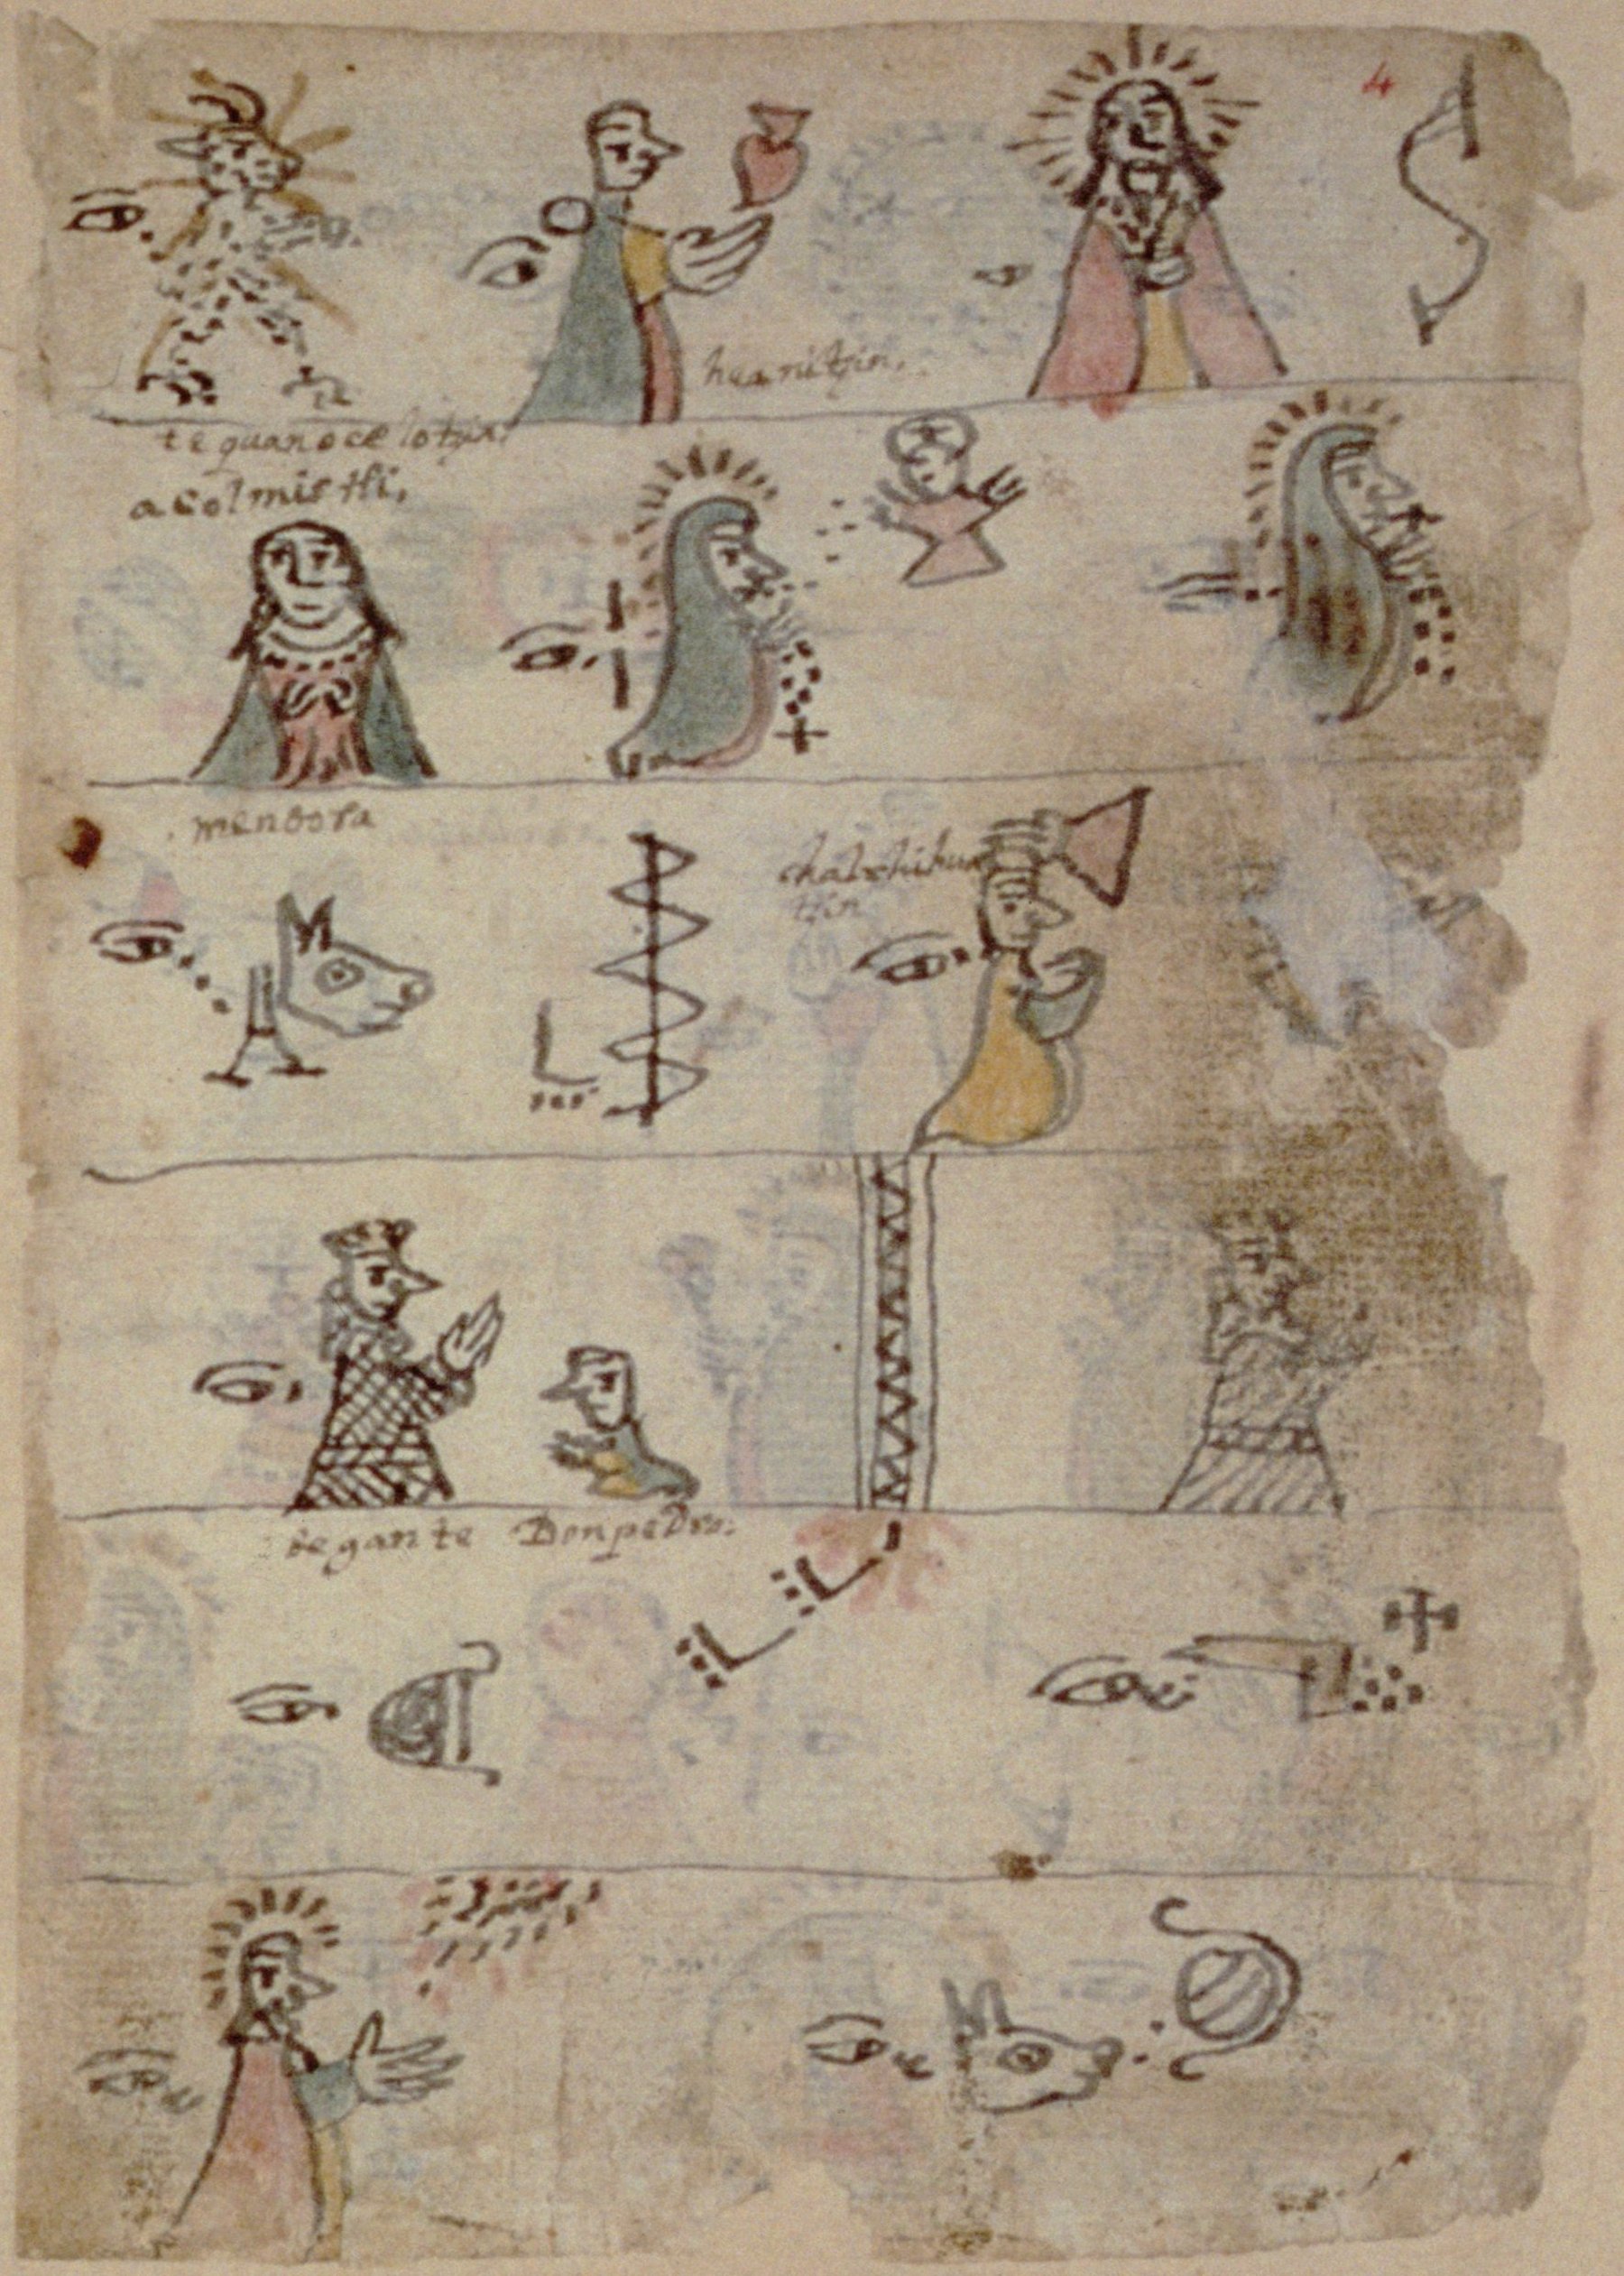 4
huanitzin.
tequanocelotzin.
acolmistli,
mendosa
chalchihua
tzin
begante Donpedro: